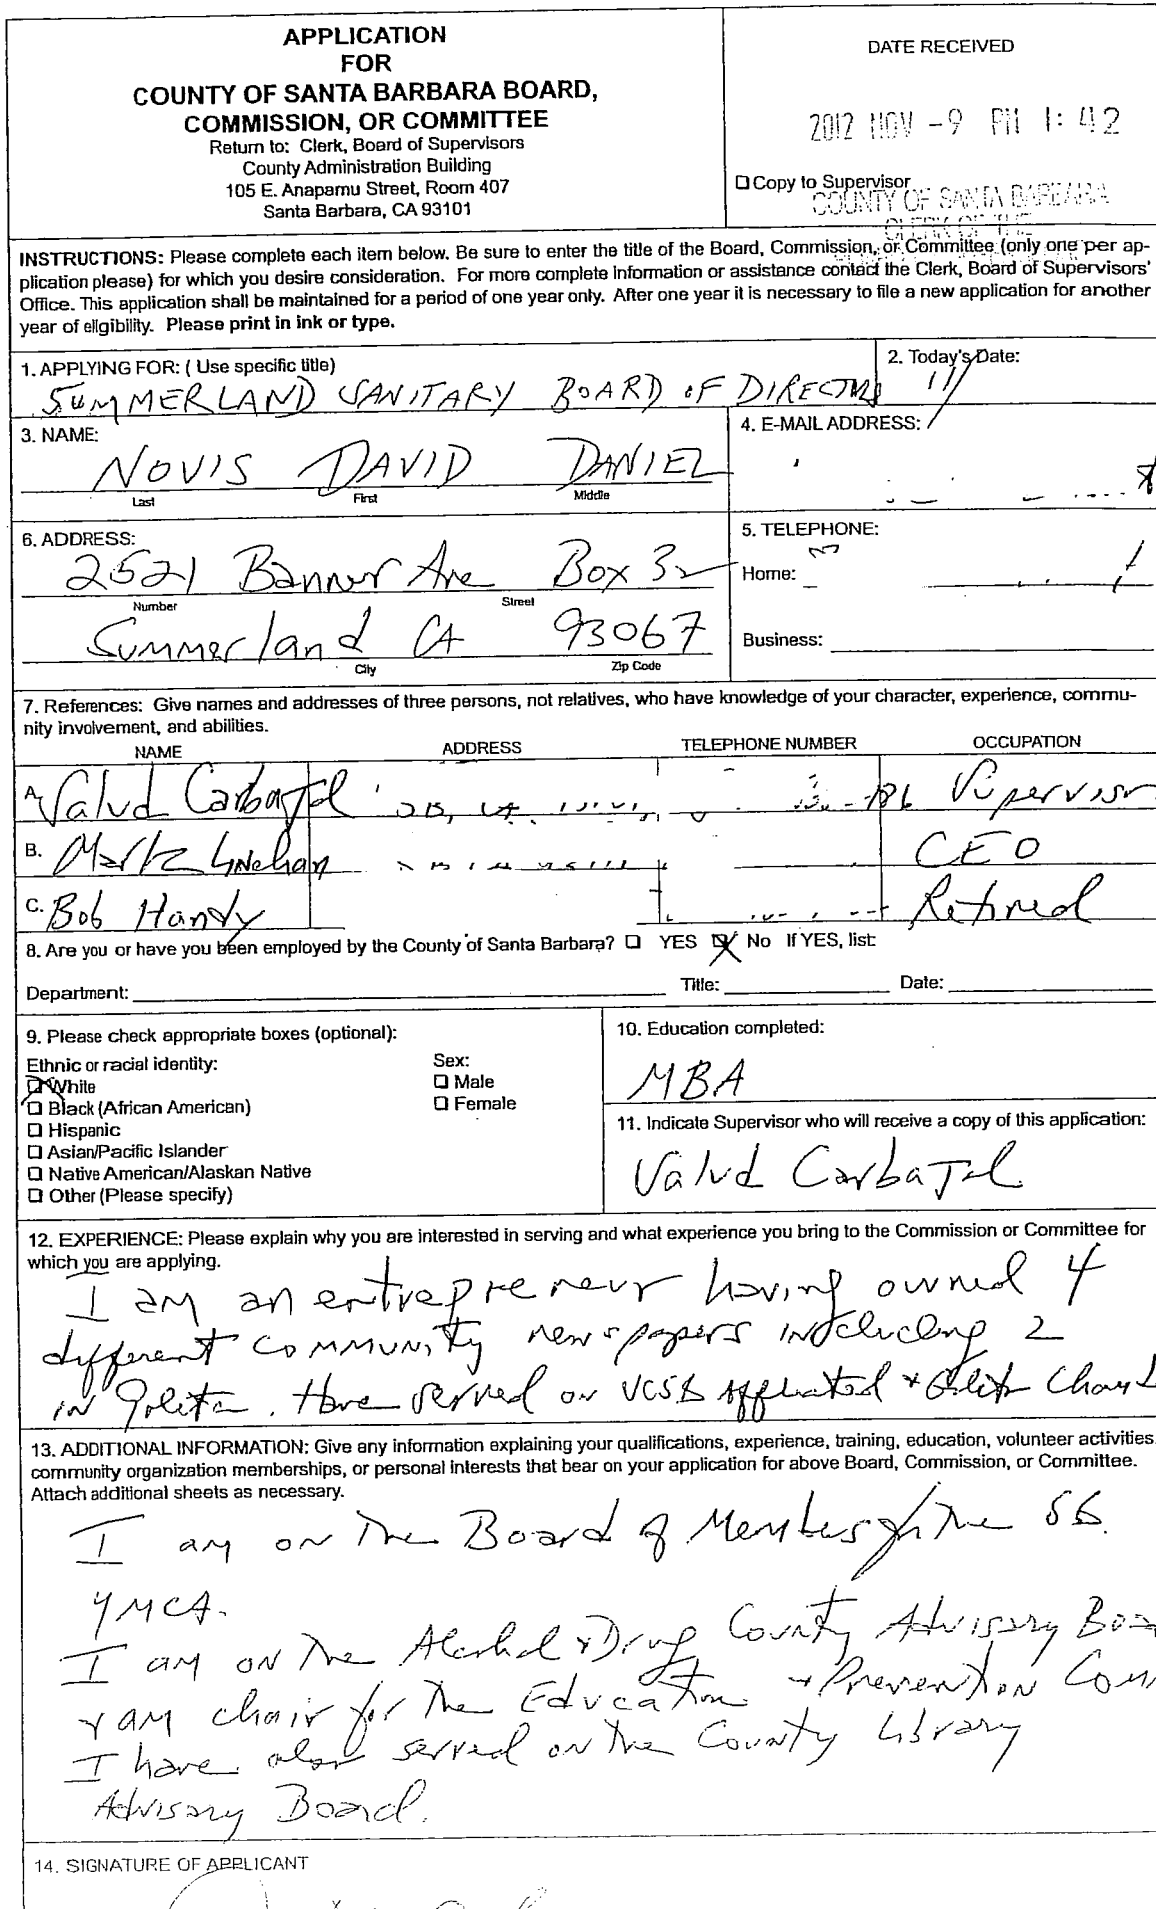 APPLICATION
FOR
COUNTY OF SANTA BARBARA BOARD,
COMMISSION, OR COMMITTEE
Return to: Clerk, Board of Supervisors
County Administration Building
105 E. Anapamu Street, Room 407
Santa Barbara, CA 93101
DATE RECEIVED
2012 NOV -9 PM 1:42
Copy to Supervisor
COUNTY OF SANTA BARBARA
CLERK OF THE
INSTRUCTIONS: Please complete each item below. Be sure to enter the title of the Board, Commission, or Committee (only one per ap-
plication please) for which you desire consideration. For more complete information or assistance contact the Clerk, Board of Supervisors'
Office. This application shall be maintained for a period of one year only. After one year it is necessary to file a new application for another
year of eligibility. Please print in ink or type.
1. APPLYING FOR: ( Use specific title)
SUMMERLAND SANITARY BOARD OF
2. Today's Date:
11/
3. NAME:
NOVIS DAVID DANIEL
Last First Middle
4. E-MAIL ADDRESS:
6. ADDRESS:
2521 Banner Ave Box 32
Number Street
Summerland CA 93067
City Zip Code
5. TELEPHONE:
Home:
Business:
7. References: Give names and addresses of three persons, not relatives, who have knowledge of your character, experience, commu-
nity involvement, and abilities.
NAME ADDRESS TELEPHONE NUMBER OCCUPATION
A. Carbajal Supervisor
B. Mark Linehan CEO
C. Bob Handy Retired
8. Are you or have you been employed by the County of Santa Barbara? YES No If YES, list:
Department: Title: Date:
9. Please check appropriate boxes (optional):
Ethnic or racial identity:
White
Black (African American)
Hispanic
Asian/Pacific Islander
Native American/Alaskan Native
Other (Please specify)
Sex:
Male
Female
10. Education completed:
MBA
11. Indicate Supervisor who will receive a copy of this application:
Carbajal
12. EXPERIENCE: Please explain why you are interested in serving and what experience you bring to the Commission or Committee for
which you are applying.
I am an entrepreneur having owned 4
different community newspapers including 2
in Goleta. Have served on UCSB Affiliated + Goleta
13. ADDITIONAL INFORMATION: Give any information explaining your qualifications, experience, training, education, volunteer activities,
community organization memberships, or personal interests that bear on your application for above Board, Commission, or Committee.
Attach additional sheets as necessary.
I am on the Board of Members of the SB.
YMCA.
I am on the Alcohol + Drug County Advisory
+ am chair for the Education + Prevention
I have also served on the County Library
Advisory Board.
14. SIGNATURE OF APPLICANT